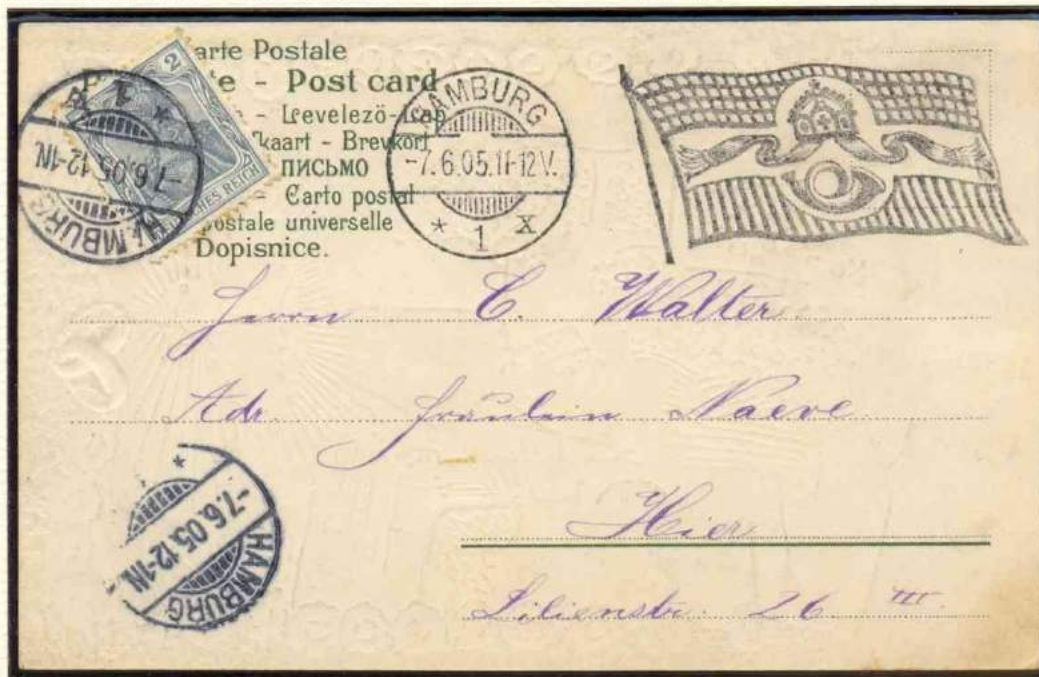 arte Postale
te - Post card
- Levelező-Lap
kaart - Brevkort
ПИСЬМО
- Carto postal
postale universelle
Dopisnice.
2
DEUTSCHES REICH
HAMBURG
-7.6.05.12-1N.
* 1 X
HAMBURG
-7.6.05.11-12V.
* 1 X
Herrn C. Walter
Adr. Fräulein Naeve
Hier
Lilienstr. 26 III.
HAMBURG
-7.6.05.12-1N.
*